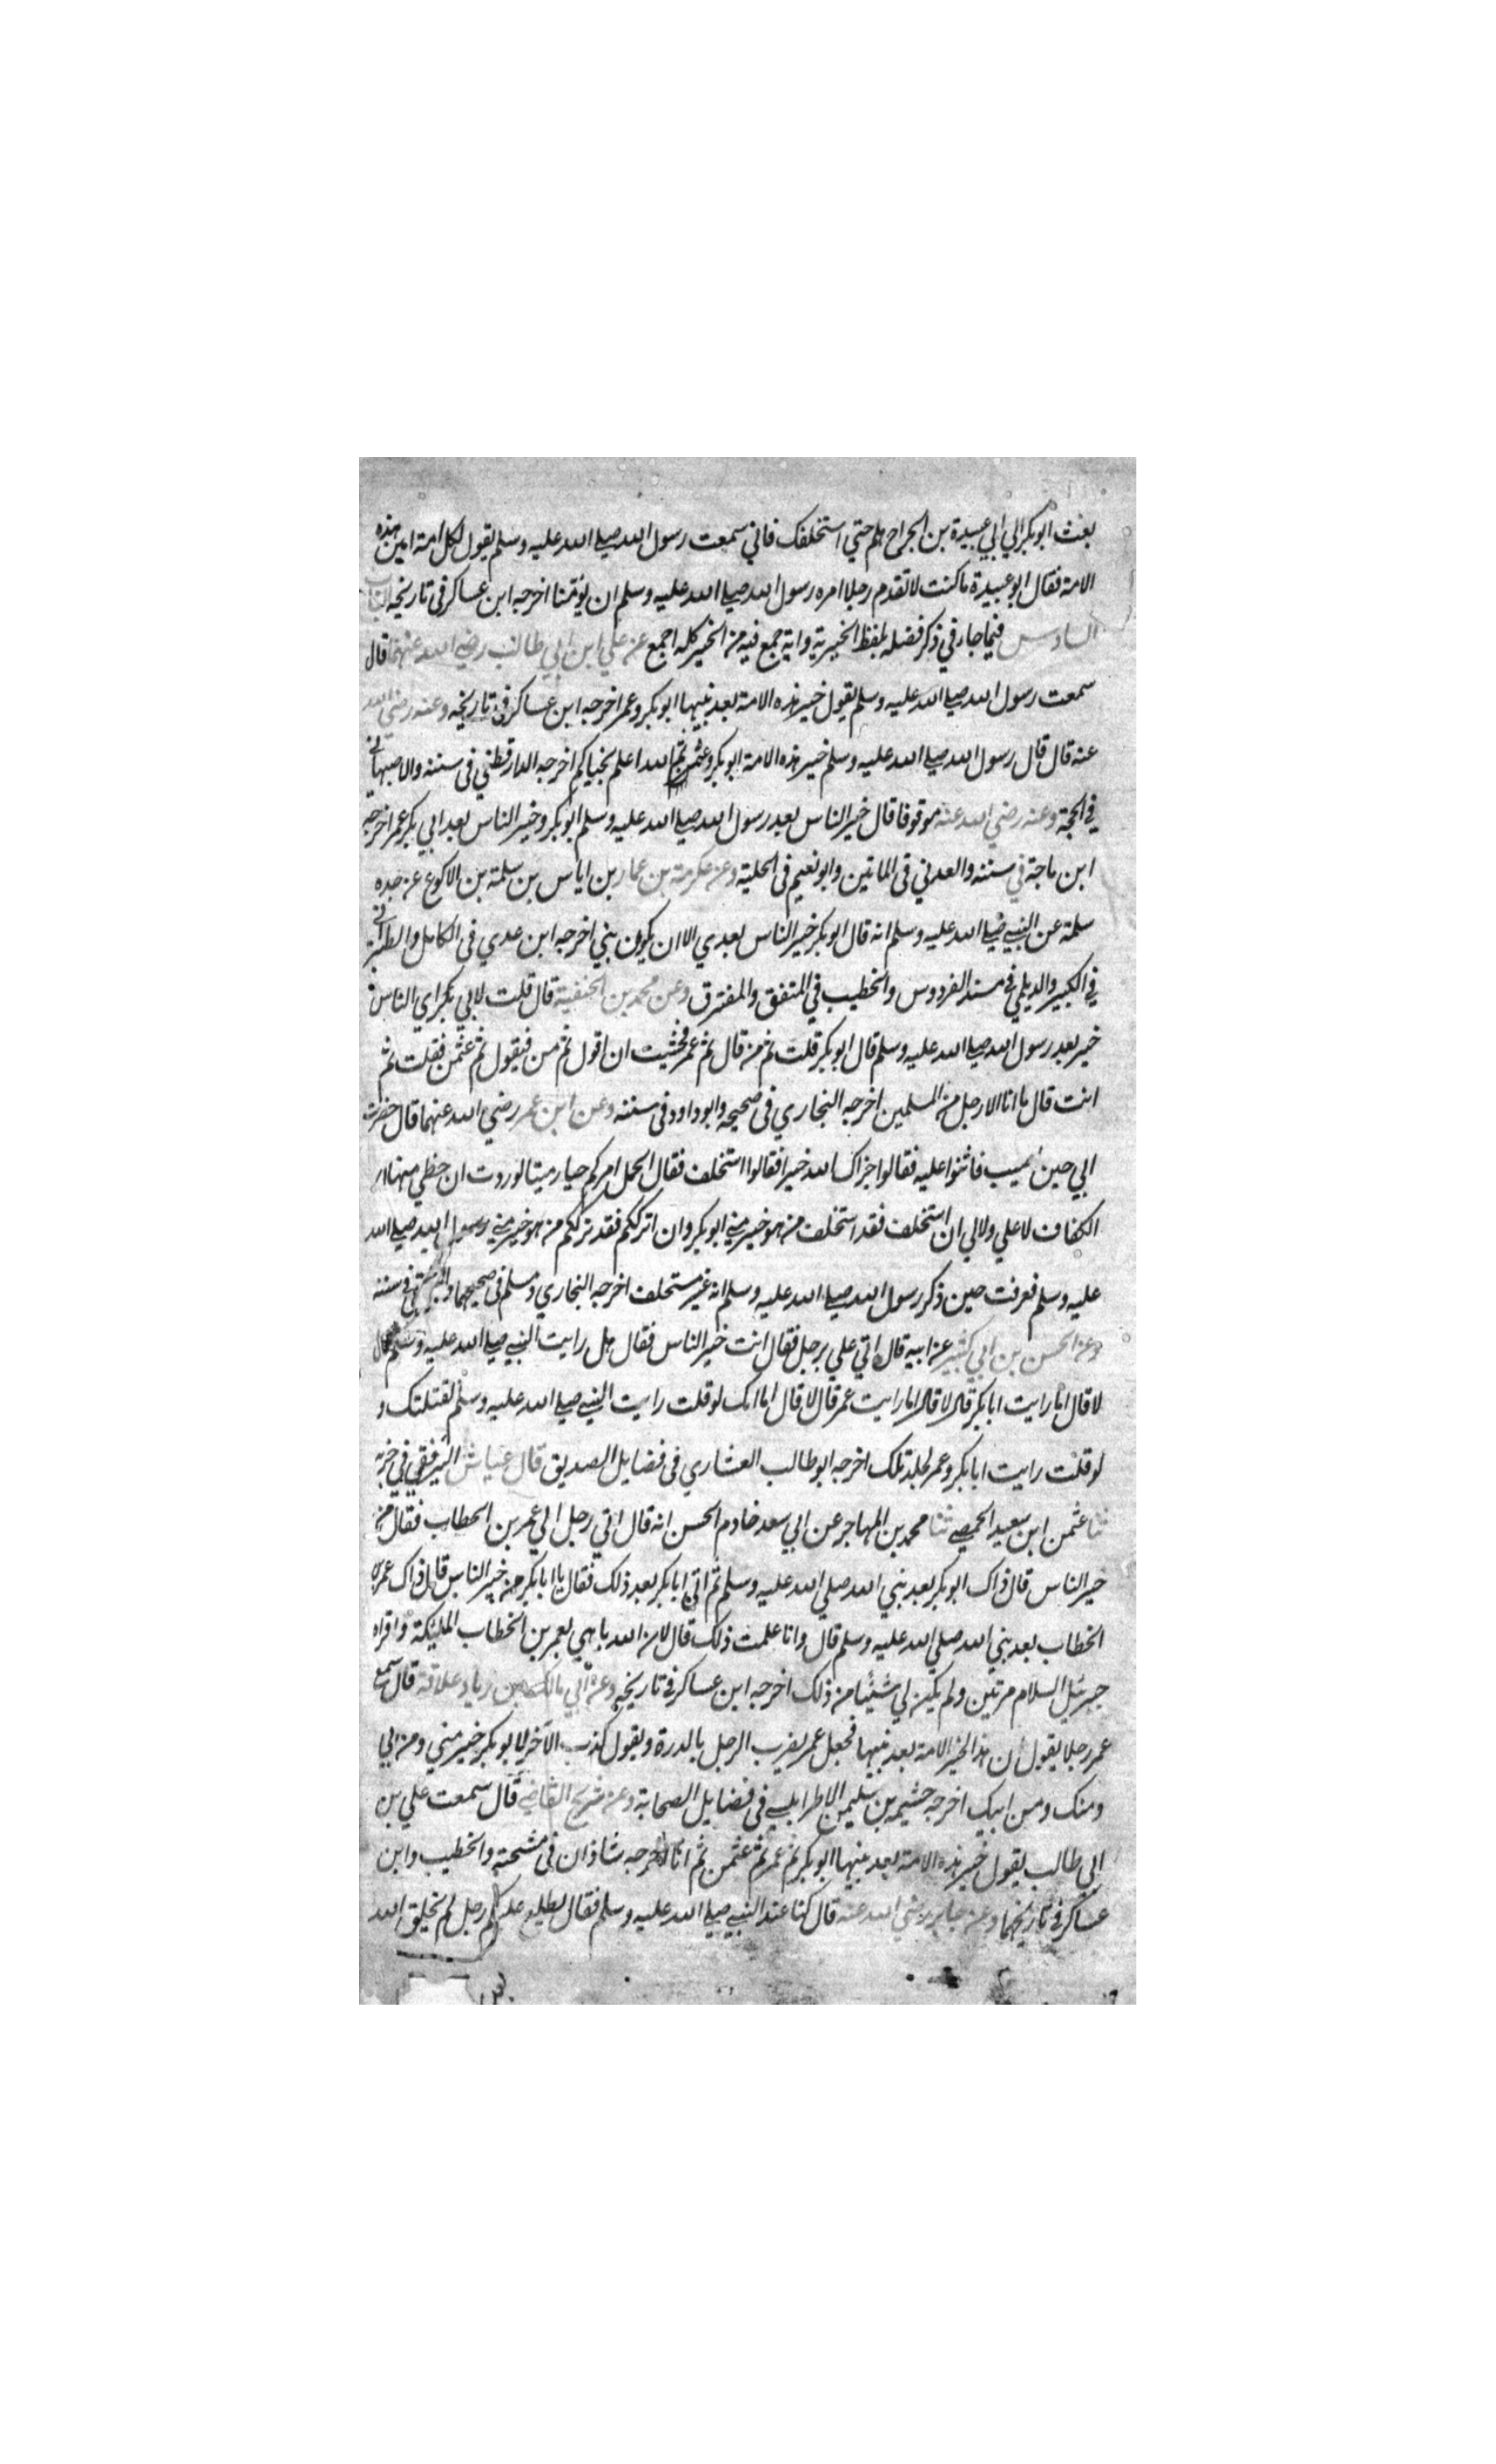 بعث ابو بكر الي ابي عبيدة بن الجراح هلم حتي استخلفك فاني سمعت رسول الله صلي الله عليه وسلم يقول لكل امة امين هذه
الامة فقال ابو عبيدة ما كنت لاتقدم رجلا امره رسول الله صلي الله عليه وسلم ان يؤمنا اخرجه ابن عساكر في تاريخه الباب
السادس فيما جاء في ذكر فضله بلفظ الخيرية وانه جمع فيه من الخير كله اجمع عن علي ابن ابي طالب رضي الله عنهما قال
سمعت رسول الله صلي الله عليه وسلم يقول خير هذه الامة بعد نبيها ابو بكر وعمر اخرجه ابن عساكر في تاريخه وعنه رضي الله
عنه قال قال رسول الله صلي الله عليه وسلم خير هذه الامة ابو بكر وعثمن ثم الله اعلم بخياركم اخرجه الدارقطني في سننه والاصبهاني
في الحجة وعنه رضي الله عنه موقوفا قال خير الناس بعد رسول الله صلي الله عليه وسلم ابو بكر وخير الناس بعد ابي بكر عمر اخرجه
ابن ماجة في سننه والعدني في المأتين وابو نعيم في الحلية وعن عكرمة بن عمار بن اياس بن سلمة بن الاكوع عن جده
سلمة عن النبي صلي الله عليه وسلم انه قال ابو بكر خير الناس بعدي الا ان يكون نبي اخرجه ابن عدي في الكامل والطبراني
في الكبير والديلمي في مسند الفردوس والخطيب في المتفق والمفترق وعن محمد بن الحنفية قال قلت لابي بكر اي الناس
خير بعد رسول الله صلي الله عليه وسلم قال ابو بكر قلت ثم من قال ثم عمر فخشيت ان اقول ثم من فيقول ثم عثمن فقلت ثم
انت قال ما انا الا رجل من المسلمين اخرجه البخاري في صحيحه وابو داود في سننه وعن ابن عمر رضي الله عنهما قال حضرت
ابي حين اصيب فاثنوا عليه فقالوا جزاك الله خيرا فقالوا استخلف فقال احمل امركم حيا وميتا لوددت ان حظي منها
الكفاف لا علي ولا لي ان استخلف فقد استخلف من هو خير مني ابو بكر وان اترككم فقد ترككم من هو خير مني رسول الله صلي الله
عليه وسلم فعرفت حين ذكر رسول الله صلي الله عليه وسلم انه غير مستخلف اخرجه البخاري ومسلم في صحيحهما والبيهقي في سننه
وعن الحسن بن ابي كثير عن ابيه قال اتي علي برجل فقال انت خير الناس فقال هل رايت النبي صلي الله عليه وسلم قال
لا قال اما رايت ابا بكر قال لا قال اما رايت عمر قال لا قال اما انك لو قلت رايت النبي صلي الله عليه وسلم لقتلتك و
لو قلت رايت ابا بكر وعمر لجلدتك اخرجه ابو طالب العشاري في فضايل الصديق قال عياش الترفقي في جزئه
ثنا عثمن ابن سعيد الحمصي ثنا محمد بن المهاجر عن ابي سعد خادم الحسن انه قال اتي رجل الي عمر بن الخطاب فقال من
خير الناس قال ذاك ابو بكر بعد نبي الله صلي الله عليه وسلم ثم اتي ابا بكر بعد ذلك فقال يا ابا بكر من خير الناس قال ذاك عمر بن
الخطاب بعد نبي الله صلي الله عليه وسلم قال وانا علمت ذلك قال لان الله باهي بعمر بن الخطاب المليكة واقراه
جبرئل السلام مرتين ولم يكن لي شيئا من ذلك اخرجه ابن عساكر في تاريخه وعن ابي مالك بن زياد علاقة قال سمع
عمر رجلا يقول ان هذا لخير الامة بعد نبيها فجعل عمر يضرب الرجل بالدرة ويقول كذب الآخر لابو بكر خير مني ومن ابي
ومنك ومن ابيك اخرجه خثيمه بن سليمن الاطرابلسي في فضايل الصحابة وعن شريح القاضي قال سمعت علي بن
ابي طالب يقول خير هذه الامة بعد نبيها ابو بكر ثم عمر ثم عثمن ثم انا اخرجه شاذان في مشيخته والخطيب وابن
عساكر في تاريخهما وعن جابر رضي الله عنه قال كنا عند النبي صلي الله عليه وسلم فقال يطلع عليكم رجل لم يخلق الله